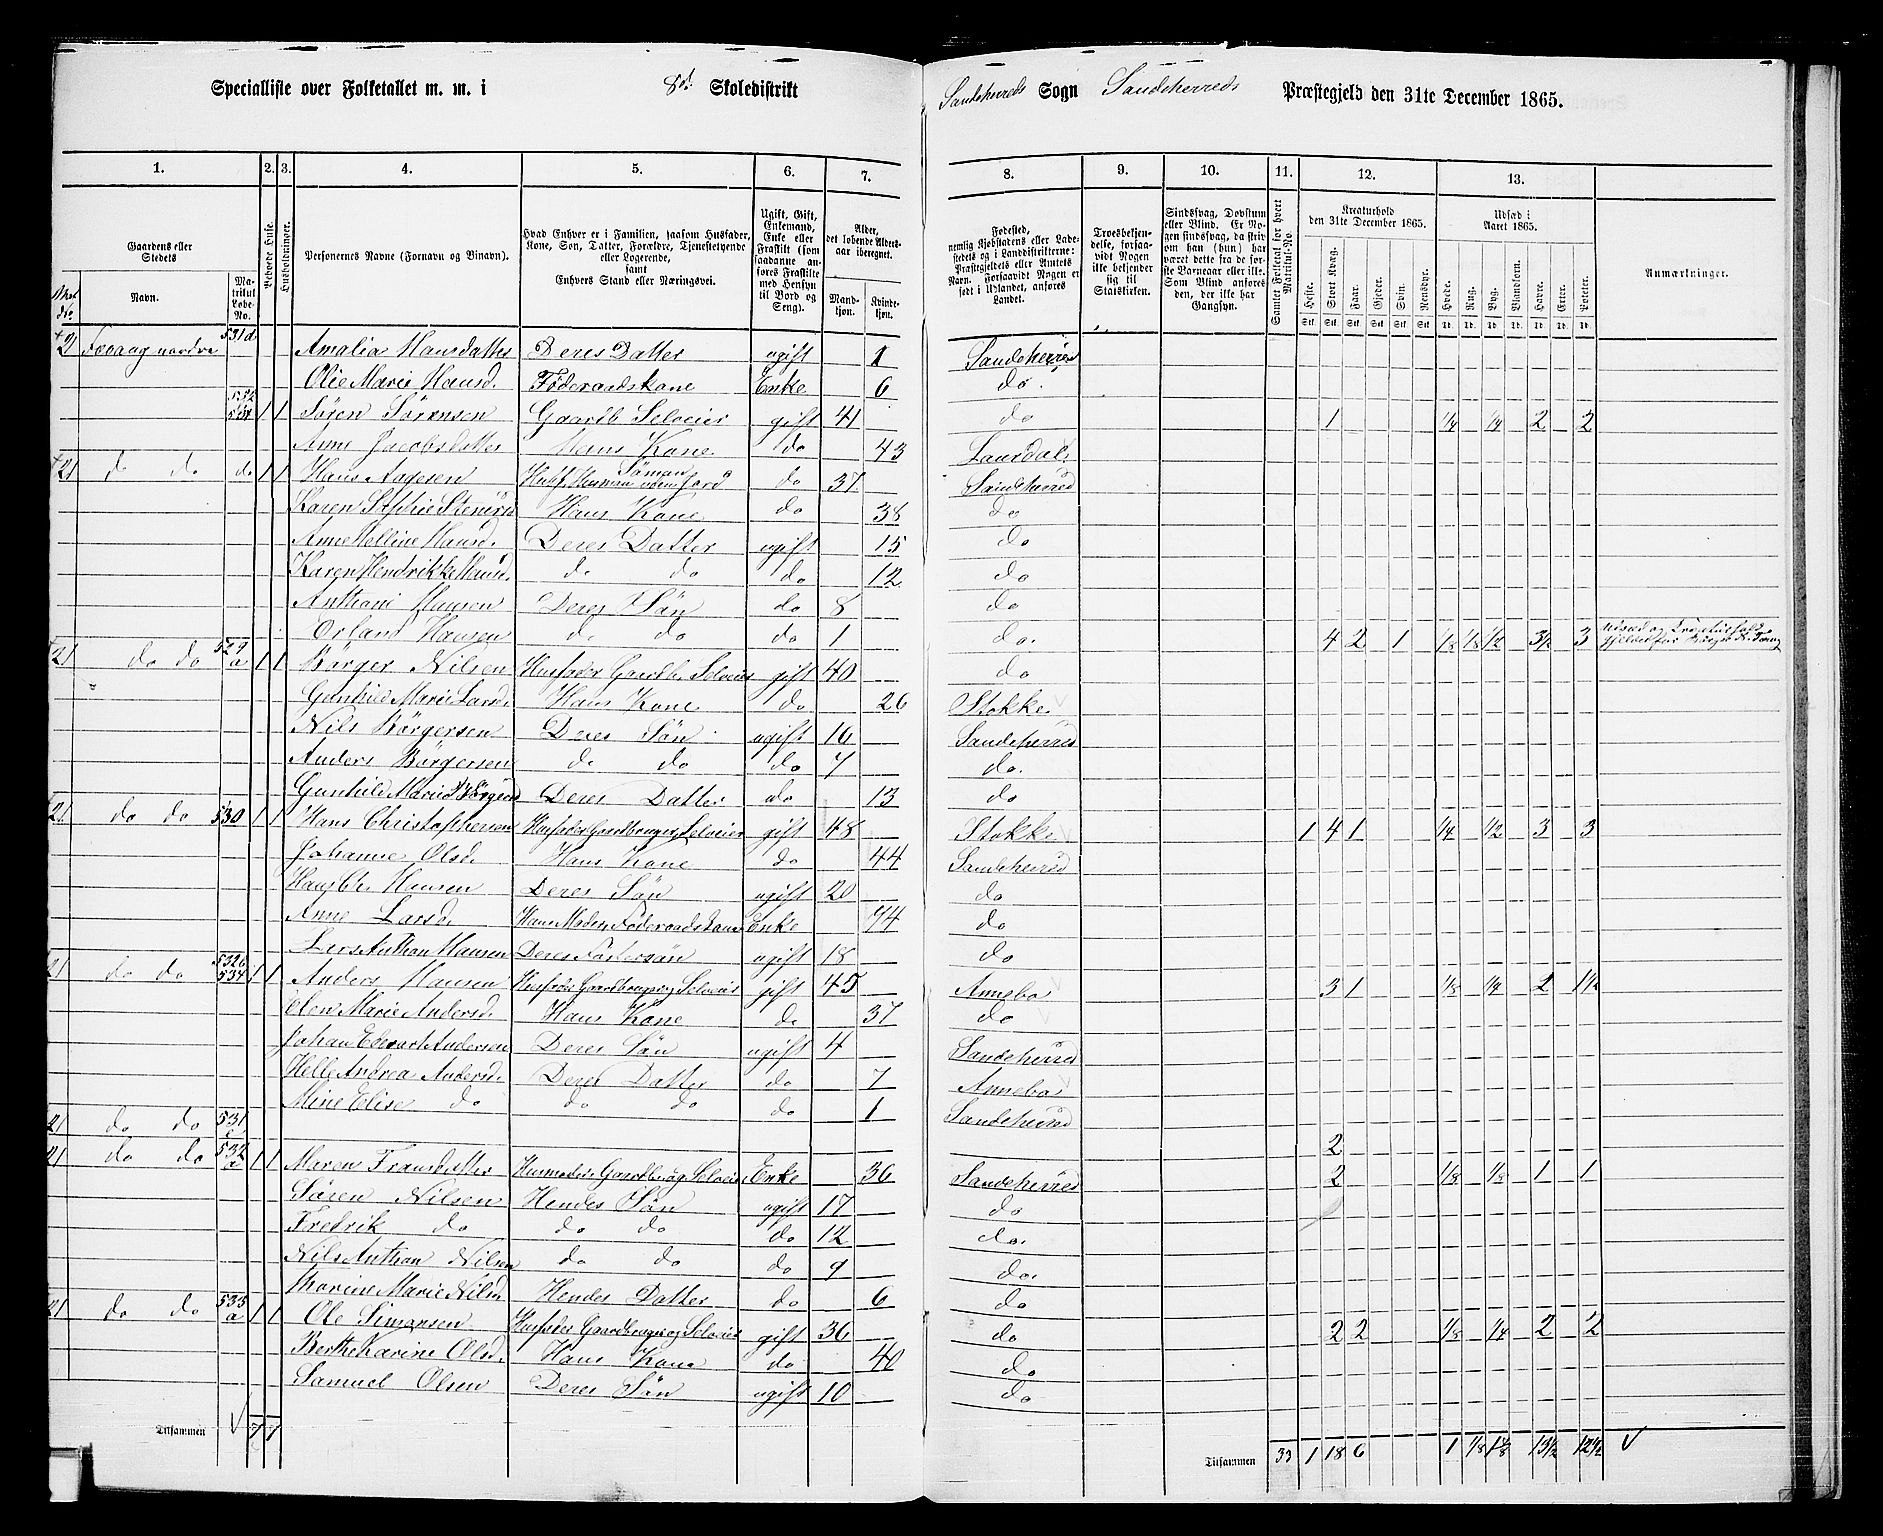 Specialliste over Folketallet m. m. i 8de Skoledistrikt Sandeherreds Sogn Sandeherreds Præstegjeld den 31te December 1865.
1. 2. 3. 4. 5. 6. 7. 8. 9. 10. 11. 12. 13.
Gaardens eller Stedets
Navn.
Matrikul Løbe-No.
Beboede Huse.
Husholdninger.
Personernes Navne (Fornavn og Vinavn).
Hvad Enhver er i Familien, saasom Husfader, Kone, Søn, Datter, Forældre, Tjenestetyende eller Logerende, samt Enhvers Stand eller Næringsvei.
Ugift, Gift, Enkemand, Enke eller Fraskilt (som saadanne anføres Fraskilte med Hensyn til Bord og Seng).
Alder, det løbende Aldersaar iberegnet.
Mandkjøn. Kvindekjøn.
Fødested, nemlig Kjøbstadens eller Ladestedets og i Landdistrikterne: Præstegjeldets eller Amtets Navn. Forsaavidt Nogen er født i Udlandet, anføres Landet.
Troesbekjendelse, forsaavidt Nogen ikke bekjender sig til Statskirken.
Sindssvag, Døvstum eller Blind. Er Nogen sindssvag, da skrives om han (hun) har været dette fra de første Barneaar eller ikke. Som Blind anføres den, der ikke har Gangsyn.
Samlet Folketal for hvert Matrikul-No.
Kreaturhold den 31te December 1865.
Heste. Stort Kvæg. Faar. Gjeder. Svin. Rensdyr.
Udsæd i Aaret 1865.
Hvede. Rug. Byg. Blandkorn. Havre. Erter. Poteter.
Anmærkninger.
21 nordre 531 d Amalia Hansdatter Deres Datter ugift 1 Sandeherred
Olie Marie Hansd. Føderaadskone Enke 6 do.
1 1 Søren Sørensen Gaardb Selveier gift 41 do 1 1/4 1/4 2 2
Anne Jacobsdatter Hans Kone do 43 Laurdal
21 do do do 1 1 Hans Aagesen Husf. Husmand uden Jord Sömand do 37 Sandeherred
Karen Hans Kone do 38 do
Hansd. Deres Datter ugift 15 do
Karen Hendrikke Hansd. do do do 12 do
Anthoni Hansen Deres Søn do 8 do
Orland Hansen do do do 1 do.
21 do do 529 a 1 1 Børger Nilsen Husfader Gaardb. Selveier gift 40 do 4 2 1 1/8 1/8 1/2 3 1/2 3
Gunhild Marie Larsd. Hans Kone do 26 Stokke
Nils Børgersen Deres Søn ugift 16 Sandeherred
Anders Børgersen do do do 7 do.
Gunhild Marie Børgersd Deres Datter do 13 do
21 do do 530 1 1 Hans Christophersen Husfader Gaardbruger Selveier gift 48 Stokke 1 4 1 1/4 1/2 3 3
Johanne Olsd. Hans Kone do 44 Sandeherred
Hans Chr. Hansen Deres Søn ugift 20 do
Anne Larsd. Hans Moder Føderaadskone Enke 74 do
Lars Anthon Hansen Deres Fostersøn ugift 18 do
21 do do 532 b 534 1 1 Anders Hansen Husfader Gaardbruger og Selveier gift 45 Annebo 3 1 1/8 1/4 2 1 1/2
Elen Marie Andersd. Hans Kone do 37 do
Johan Edevart Andersen Deres Søn ugift 4 Sandeherred
Helle Andrea Andersd. Deres Datter do 7 Annebo
Mine Elise do do do do 1 Sandeherred
21 do do 531 2
21 do do 532 a 1 1 Maren Fransdatter Husmoder Gaardbr. og Selveier Enke 36 Sandeherred 2 1/8 1/8 1 1
Søren Nilsen Hendes Søn ugift 17 do
Fredrik do do do do 12 do.
Nils Anthon Nilsen do do do 9 do.
Marine Marie Nilsd Hendes Datter do 6 do
21 do do 533 a 1 1 Ole Simonsen Husfader Gaardbruger og Selveier gift 36 do 2 2 1/8 1/4 2 2
Berthe Karine Olsd. Hans Kone do 40 do
Samuel Olsen Deres Søn ugift 10 do
Tilsammen 7 7
Tilsammen 33 1 18 6 1 1/8 1 7/8 13 1/2 12 1/2